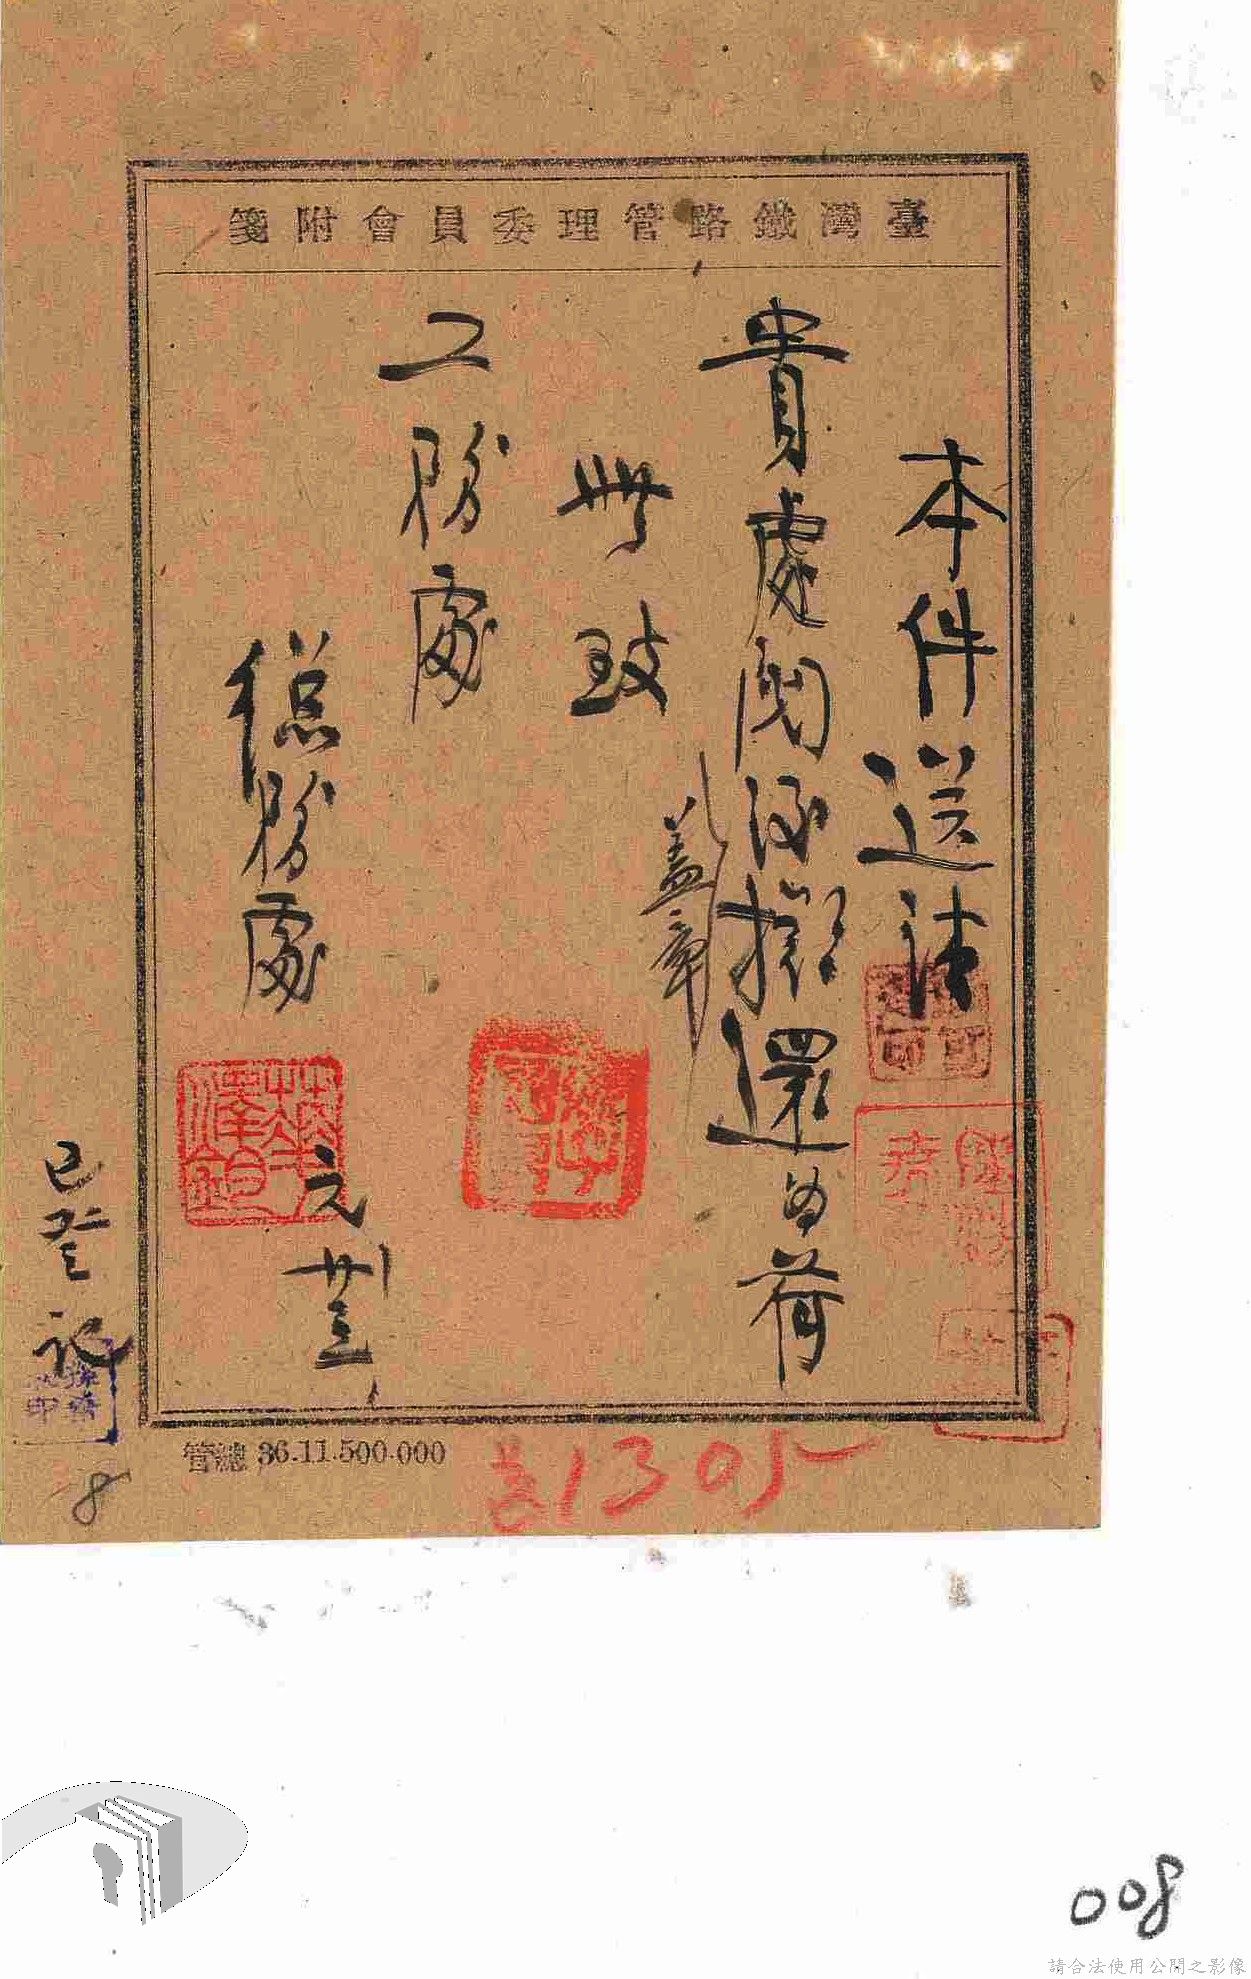 臺灣鐵路管理委員會附箋
本件送請
貴處閱後擲還為荷
蓋章
此致
工務處
總務處
元
已登記
管總 36.11.500.000
1305
8
008
請合法使用公開之影像